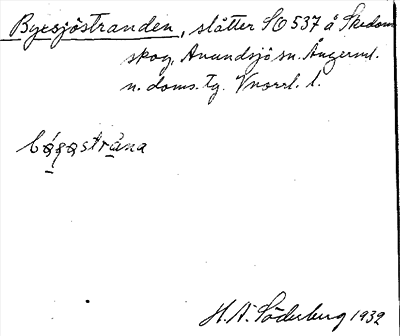 Byesjöstranden, slåtter SO 537 å Skedom
skog, Anundsjö sn. Ångerml.
n. doms. tg. Vnorrl. l.
H. A. Söderberg 1932